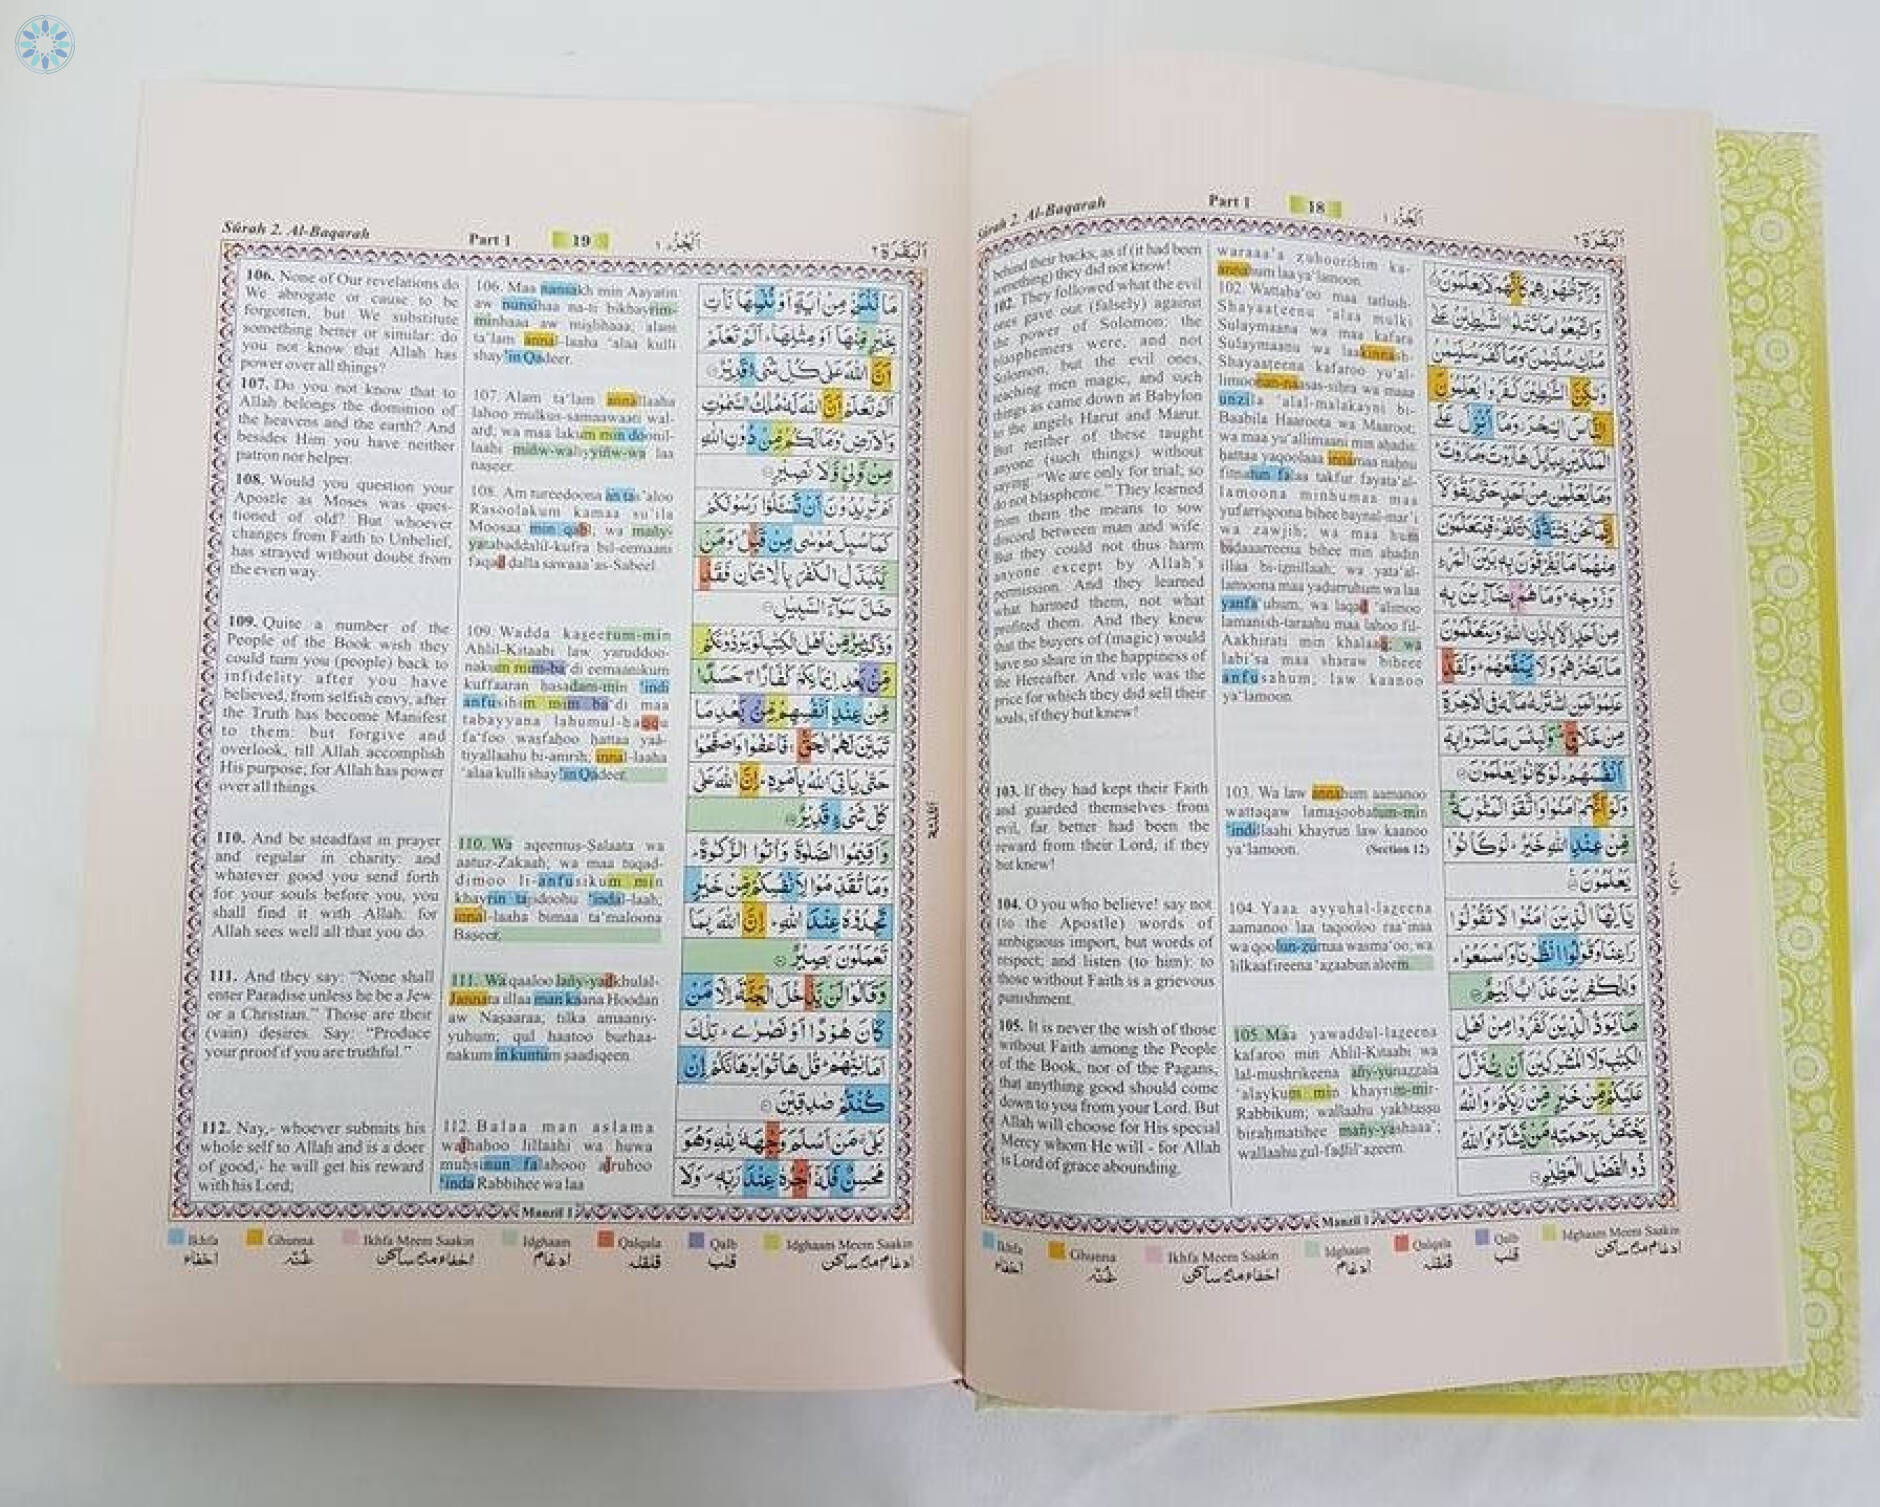 Sûrah 2. Al-Baqarah
Part 1
18
behind their backs, as if (it had been
something) they did not know!
102. They followed what the evil
ones gave out (falsely) against
the power of Solomon: the
blasphemers were, not
Solomon, but the evil ones,
teaching men magic, and such
things as came down at Babylon
to the angels Harut and Marut.
But neither of these taught
anyone (such things) without
saying: "We are only for trial; so
do not blaspheme." They learned
from them the means to sow
discord between man and wife.
But they could not thus harm
anyone except by Allah's
permission. And they learned
what harmed them, not what
profited them. And they knew
that the buyers of (magic) would
have no share in the happiness of
the Hereafter. And vile was the
price for which they did sell their
souls, if they but knew!
103. If they had kept their Faith
and guarded themselves from
evil, far better had been the
reward from their Lord, if they
but knew!
104. O you who believe! say not
(to the Apostle) words of
ambiguous import, but words of
respect; and listen (to him): to
those without Faith is a grievous
punishment.
105. It is never the wish of those
without Faith among the People
of the Book, nor of the Pagans,
that anything good should come
down to you from your Lord. But
Allah will choose for His special
Mercy whom He will - for Allah
is Lord of grace abounding.
waraaa'a zuhoorihim ka-
annahum laa ya'lamoon.
102. Wattaba'oo maa tatlush-
Shayaateenu 'alaa mulki
Sulaymaana wa maa kafara
Sulaymaanu wa laakinnash-
Shayaateena kafaroo yu'al-
limoonan-naasas-sihra wa maaa
unzila 'alal-malakayni bi-
Baabila Haaroota wa Maaroot;
wa maa yu'allimaani min ahadin
hattaa yaqoolaaa innamaa nahnu
fitnatun falaa takfur fayata'al-
lamoona minhumaa maa
yufarriqoona bihee baynal-mar'i
wa zawjih; wa maa hum
bidaaarreena bihee min ahadin
illaa bi-iznillaah; wa yata'al-
lamoona maa yadurruhum wa laa
yanfa'uhum, wa laqad 'alimoo
lamanish-taraahu maa lahoo fil-
Aakhirati min khalaaq; wa
labi'sa maa sharaw biheee
anfusahum; law kaanoo
ya'lamoon.
103. Wa law annahum aamanoo
wattaqaw lamasoobatum-min
'indillaahi khayrun law kaanoo
ya'lamoon. (Section 12)
104. Yaaa ayyuhal-lazeena
aamanoo laa taqooloo raa'inaa
wa qoolun-zurnaa wasma'oo; wa
lilkaafireena 'azaabun aleem.
105. Maa yawaddul-lazeena
kafaroo min Ahlil-Kitaabi wa
lal-mushrikeena añy-yunazzala
'alaykum min khayrim-mir-
Rabbikum; wallaahu yakhtassu
birahmatihee mañy-yashaaa';
wallaahu zul-fadlil'azeem.
وَرَآءَ ظُهُورِهِمْ كَأَنَّهُمْ لَا يَعْلَمُونَ
وَاتَّبَعُوا مَا تَتْلُوا الشَّيٰطِينُ عَلٰى
مُلْكِ سُلَيْمٰنَ وَمَا كَفَرَ سُلَيْمٰنُ
وَلٰكِنَّ الشَّيٰطِينَ كَفَرُوا يُعَلِّمُونَ
النَّاسَ السِّحْرَ وَمَا أُنْزِلَ عَلَى
الْمَلَكَيْنِ بِبَابِلَ هَارُوتَ وَمَارُوتَ
وَمَا يُعَلِّمٰنِ مِنْ أَحَدٍ حَتّٰى يَقُولَا
إِنَّمَا نَحْنُ فِتْنَةٌ فَلَا تَكْفُرْ فَيَتَعَلَّمُونَ
مِنْهُمَا مَا يُفَرِّقُونَ بِهٖ بَيْنَ الْمَرْءِ
وَزَوْجِهٖ وَمَا هُمْ بِضَآرِّينَ بِهٖ
مِنْ أَحَدٍ إِلَّا بِإِذْنِ اللّٰهِ وَيَتَعَلَّمُونَ
مَا يَضُرُّهُمْ وَلَا يَنْفَعُهُمْ وَلَقَدْ
عَلِمُوا لَمَنِ اشْتَرٰىهُ مَا لَهٗ فِي الْاٰخِرَةِ
مِنْ خَلَاقٍ وَلَبِئْسَ مَا شَرَوْا بِهٖ
أَنْفُسَهُمْ لَوْ كَانُوا يَعْلَمُونَ
وَلَوْ أَنَّهُمْ اٰمَنُوا وَاتَّقَوْا لَمَثُوبَةٌ
مِّنْ عِنْدِ اللّٰهِ خَيْرٌ لَوْ كَانُوا
يَعْلَمُونَ
يٰأَيُّهَا الَّذِينَ اٰمَنُوا لَا تَقُولُوا
رَاعِنَا وَقُولُوا انْظُرْنَا وَاسْمَعُوا
وَلِلْكٰفِرِينَ عَذَابٌ أَلِيمٌ
مَا يَوَدُّ الَّذِينَ كَفَرُوا مِنْ أَهْلِ
الْكِتٰبِ وَلَا الْمُشْرِكِينَ أَنْ يُّنَزَّلَ
عَلَيْكُمْ مِّنْ خَيْرٍ مِّنْ رَّبِّكُمْ وَاللّٰهُ
يَخْتَصُّ بِرَحْمَتِهٖ مَنْ يَّشَآءُ وَاللّٰهُ
ذُو الْفَضْلِ الْعَظِيمِ
Manzil 1
Ikhfa Ghunna Ikhfa Meem Saakin Idghaam Qalqala Qalb Idghaam Meem Saakin
اخفاء غُنّہ اخفاء میم ساکن ادغام قلقلہ قلب ادغام میم ساکن
Sûrah 2. Al-Baqarah
Part 1
19
106. None of Our revelations do
We abrogate or cause to be
forgotten, but We substitute
something better or similar: do
you not know that Allah has
power over all things?
107. Do you not know that to
Allah belongs the dominion of
the heavens and the earth? And
besides Him you have neither
patron nor helper.
108. Would you question your
Apostle as Moses was ques-
tioned of old? But whoever
changes from Faith to Unbelief,
has strayed without doubt from
the even way.
109. Quite a number of the
People of the Book wish they
could turn you (people) back to
infidelity after you have
believed, from selfish envy, after
the Truth has become Manifest
to them: but forgive and
overlook, till Allah accomplish
His purpose; for Allah has power
over all things.
110. And be steadfast in prayer
and regular in charity: and
whatever good you send forth
for your souls before you, you
shall find it with Allah: for
Allah sees well all that you do.
111. And they say: "None shall
enter Paradise unless he be a Jew
or a Christian." Those are their
(vain) desires. Say: "Produce
your proof if you are truthful."
112. Nay,- whoever submits his
whole self to Allah and is a doer
of good,- he will get his reward
with his Lord;
106. Maa nansakh min Aayatin
aw nunsihaa na-ti bikhayrim-
minhaaa aw mislihaaa; alam
ta'lam annal-laaha 'alaa kulli
shay'in Qadeer.
107. Alam ta'lam annallaaha
lahoo mulkus-samaawaati wal-
ard; wa maa lakum min doonil-
laahi miñw-waliyyiñw-wa laa
naseer.
108. Am tureedoona an tas'aloo
Rasoolakum kamaa su'ila
Moosaa min qabl; wa mañy-
yatabaddalil-kufra bil-eemaani
faqad dalla sawaaa'as-Sabeel.
109. Wadda kaseerum-min
Ahlil-Kitaabi law yaruddoo-
nakum mim-ba'di eemaanikum
kuffaaran hasadam-min 'indi
anfusihim mim ba'di maa
tabayyana lahumul-haqqu
fa'foo wasfahoo hattaa yah-
tiyallaahu bi-amrih; innal-laaha
'alaa kulli shay'in Qadeer.
110. Wa aqeemus-Salaata wa
aatuz-Zakaah; wa maa tuqad-
dimoo li-anfusikum min
khayrin tajidoohu 'indal-laah;
innal-laaha bimaa ta'maloona
Baseer.
111. Wa qaaloo lañy-yadkhulal-
Jannata illaa man kaana Hoodan
aw Nasaaraa; tilka amaaniy-
yuhum; qul haatoo burhaa-
nakum in kuntum saadiqeen.
112. Balaa man aslama
wajhahoo lillaahi wa huwa
muhsinun falahooo ajruhoo
'inda Rabbihee wa laa
مَا نَنْسَخْ مِنْ اٰيَةٍ أَوْ نُنْسِهَا نَأْتِ
بِخَيْرٍ مِّنْهَا أَوْ مِثْلِهَا أَلَمْ تَعْلَمْ
أَنَّ اللّٰهَ عَلٰى كُلِّ شَيْءٍ قَدِيرٌ
أَلَمْ تَعْلَمْ أَنَّ اللّٰهَ لَهٗ مُلْكُ السَّمٰوٰتِ
وَالْأَرْضِ وَمَا لَكُمْ مِّنْ دُونِ اللّٰهِ
مِنْ وَّلِيٍّ وَّلَا نَصِيرٍ
أَمْ تُرِيدُونَ أَنْ تَسْئَلُوا رَسُولَكُمْ
كَمَا سُئِلَ مُوسٰى مِنْ قَبْلُ وَمَنْ
يَّتَبَدَّلِ الْكُفْرَ بِالْإِيمَانِ فَقَدْ
ضَلَّ سَوَآءَ السَّبِيلِ
وَدَّ كَثِيرٌ مِّنْ أَهْلِ الْكِتٰبِ لَوْ يَرُدُّونَكُمْ
مِّنْ بَعْدِ إِيمَانِكُمْ كُفَّارًا حَسَدًا
مِّنْ عِنْدِ أَنْفُسِهِمْ مِّنْ بَعْدِ مَا
تَبَيَّنَ لَهُمُ الْحَقُّ فَاعْفُوا وَاصْفَحُوا
حَتّٰى يَأْتِيَ اللّٰهُ بِأَمْرِهٖ إِنَّ اللّٰهَ عَلٰى
كُلِّ شَيْءٍ قَدِيرٌ
وَأَقِيمُوا الصَّلٰوةَ وَاٰتُوا الزَّكٰوةَ
وَمَا تُقَدِّمُوا لِأَنْفُسِكُمْ مِّنْ خَيْرٍ
تَجِدُوهُ عِنْدَ اللّٰهِ إِنَّ اللّٰهَ بِمَا
تَعْمَلُونَ بَصِيرٌ
وَقَالُوا لَنْ يَّدْخُلَ الْجَنَّةَ إِلَّا مَنْ
كَانَ هُودًا أَوْ نَصٰرٰى تِلْكَ
أَمَانِيُّهُمْ قُلْ هَاتُوا بُرْهَانَكُمْ إِنْ
كُنْتُمْ صٰدِقِينَ
بَلٰى مَنْ أَسْلَمَ وَجْهَهٗ لِلّٰهِ وَهُوَ
مُحْسِنٌ فَلَهٗ أَجْرُهٗ عِنْدَ رَبِّهٖ وَلَا
Manzil 1
Ikhfa Ghunna Ikhfa Meem Saakin Idghaam Qalqala Qalb Idghaam Meem Saakin
اخفاء غُنّہ اخفاء میم ساکن ادغام قلقلہ قلب ادغام میم ساکن